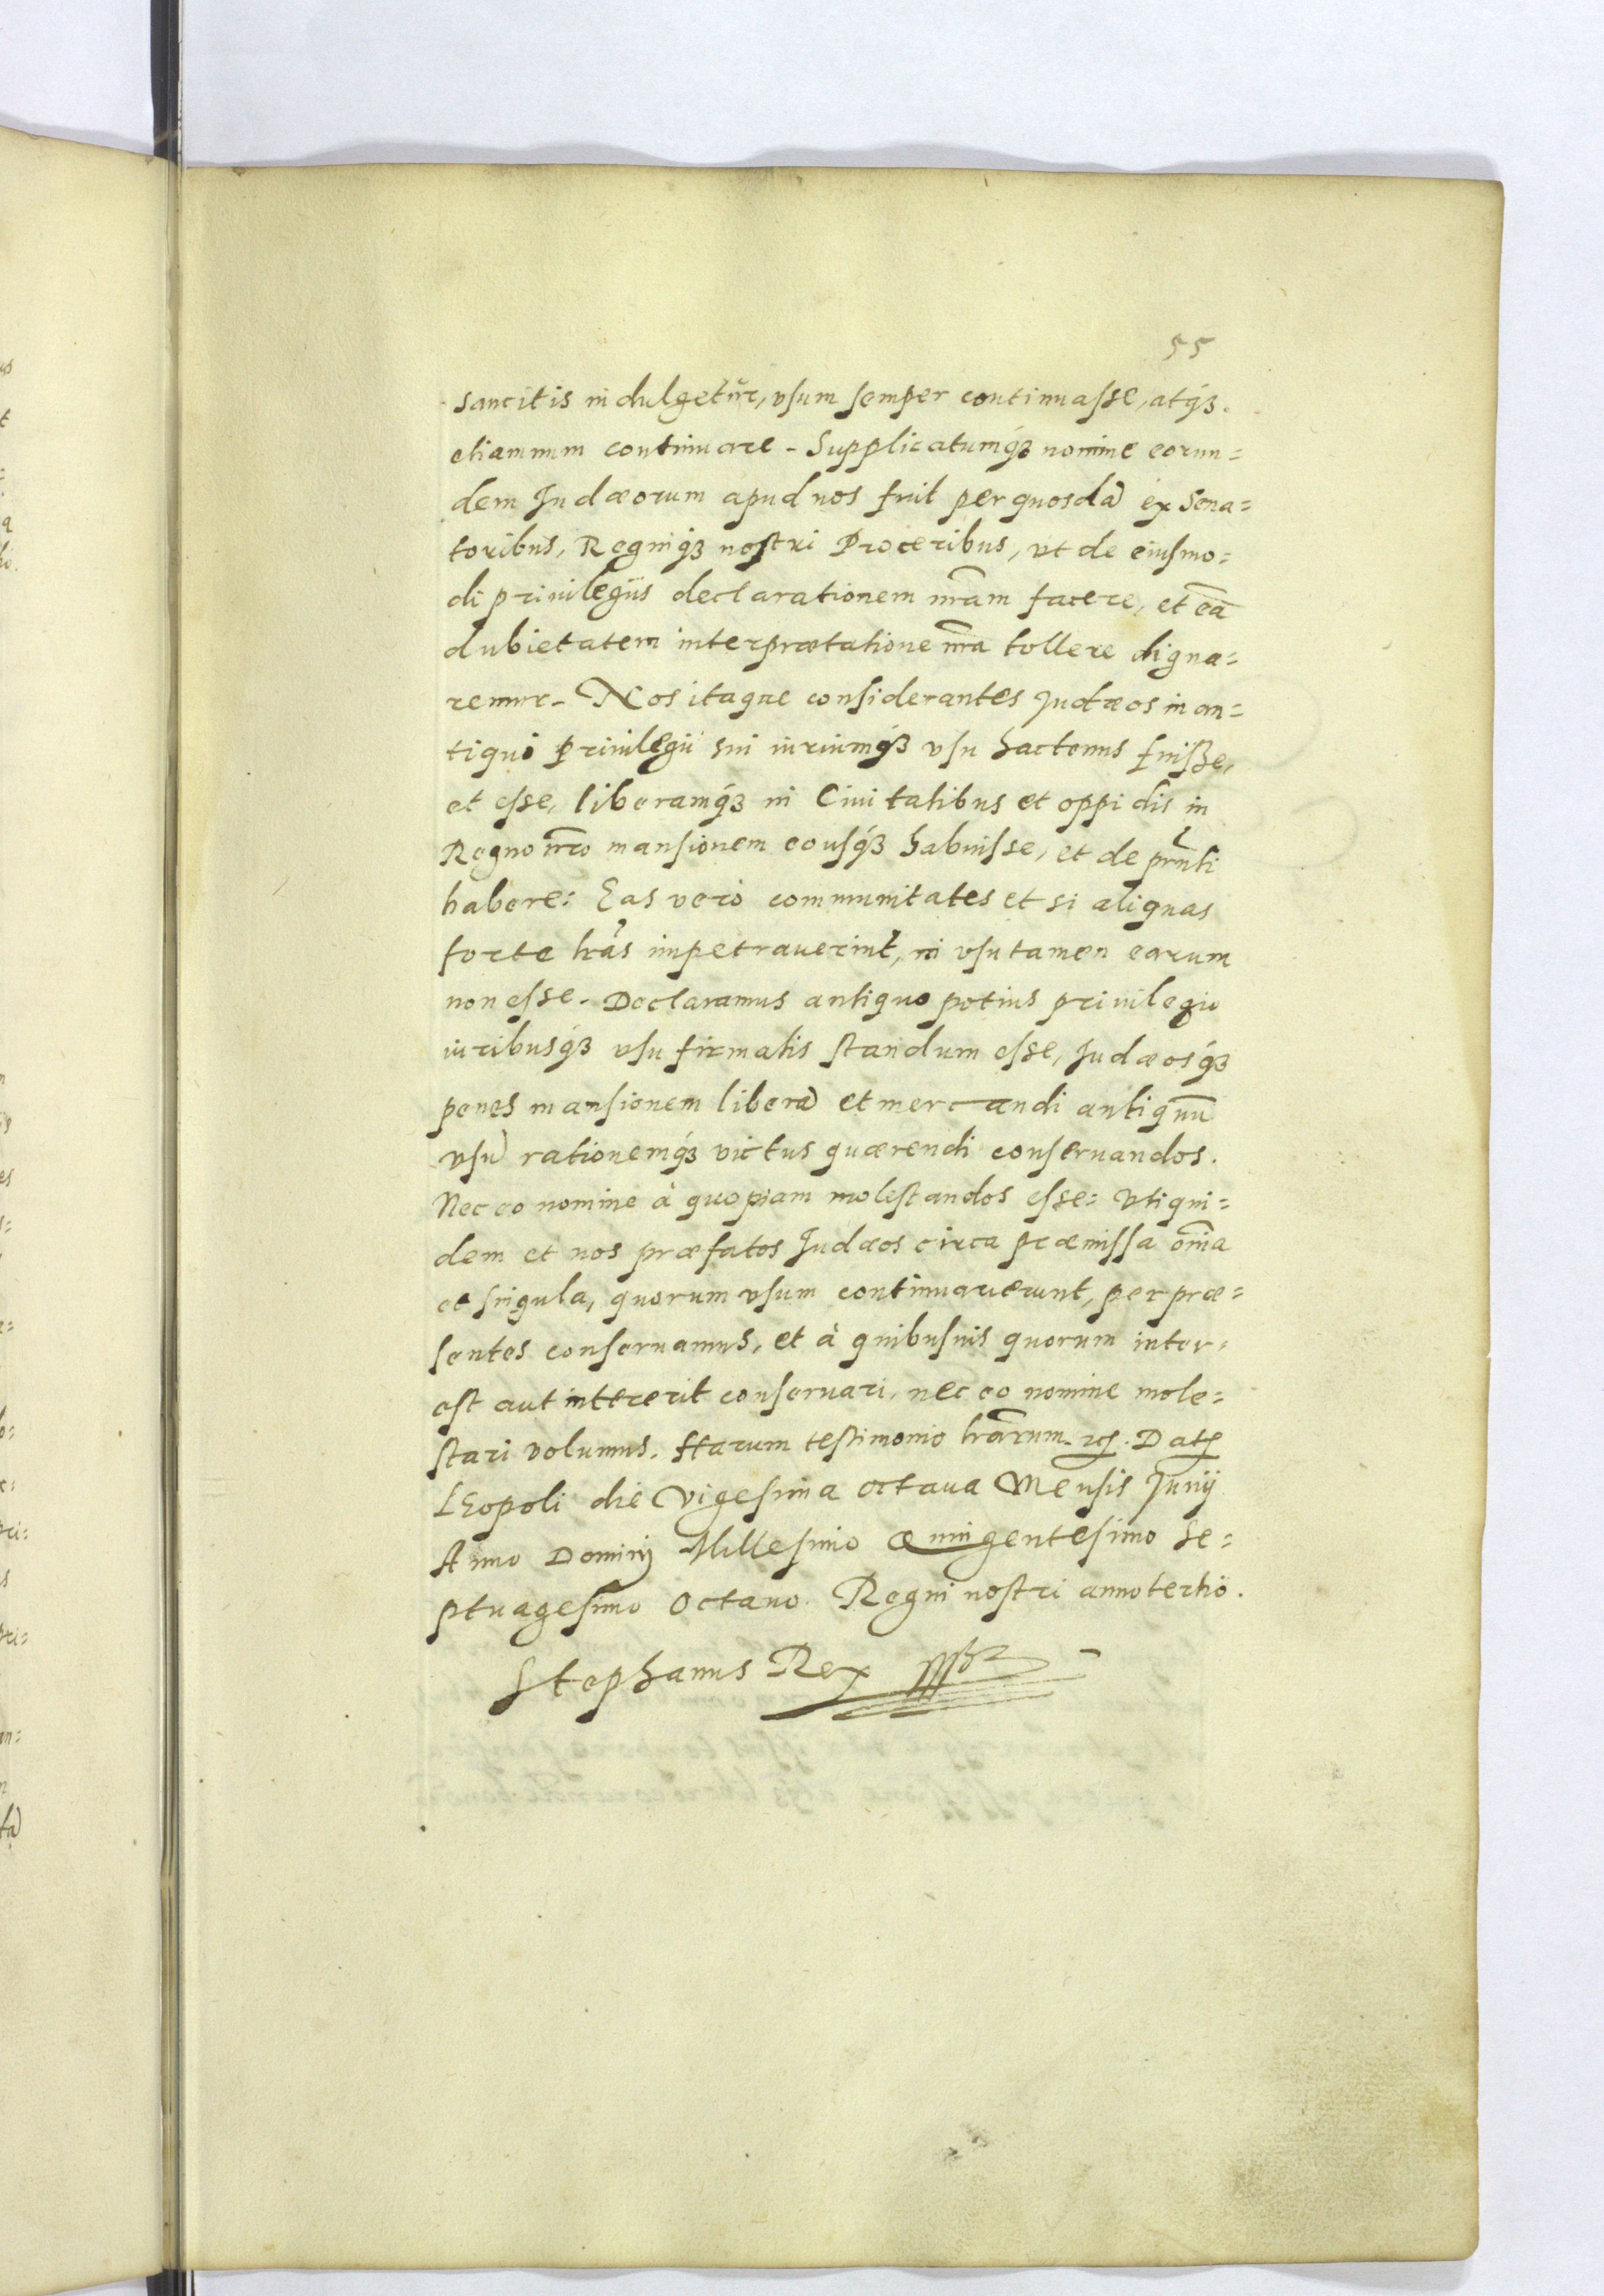 55
sancitis indulgetur, vsum semper continuasse, atq́ꝫ
etiamnum continuare - Supplicatumq́ꝫ nomine eorun=
dem Judæorum apud nos fuit per quosdã ex Sena=
toribus, Regniq́ꝫ nostri Proceribus, vt de eiusmo=
di priuilegijs declarationem nr̃am facere, et eã
dubietatem interprætatione nr̃a tollere digna=
remur - Nos itaque considerantes Judæos in an=
tiqui priuilegii sui iuriumq́ꝫ vsu hactenus fuisse,
et esse, liberamq́ꝫ in Ciuitatibus et oppidis in
Regno nr̃o mansionem eousq́ꝫ habuisse, et de pr̃nti
habere: Eas verò communitates et si aliquas
forte lr̃as impetrauerint, in vsu tamen earum
non esse. Declaramus antiquo potius priuilegio
iuribusq́ꝫ vsu firmatis standum esse, Judæosq́ꝫ
penes mansionem liberã et mercandi antiquũ
vsũ rationemq́ꝫ victus quærendi conseruandos.
Nec eo nomine à quopiam molestandos esse: Vtiqui=
dem et nos præfatos Judæos circa præmissa om̃ia
et singula, quorum vsum continuauerunt, per præ=
sentes conseruamus, et à quibusuis quorum inter=
est aut intererit conseruari, nec eo nomine mole=
stari volumus. Harum testimonio lr̃arum - etc. Datꝭ
LEopoli die Vigesima octaua Mensis Junij
Anno Dominj Millesimo Quingentesimo Se=
ptuagesimo Octauo Regni nostri anno tertio.
Stephanus Rex sst